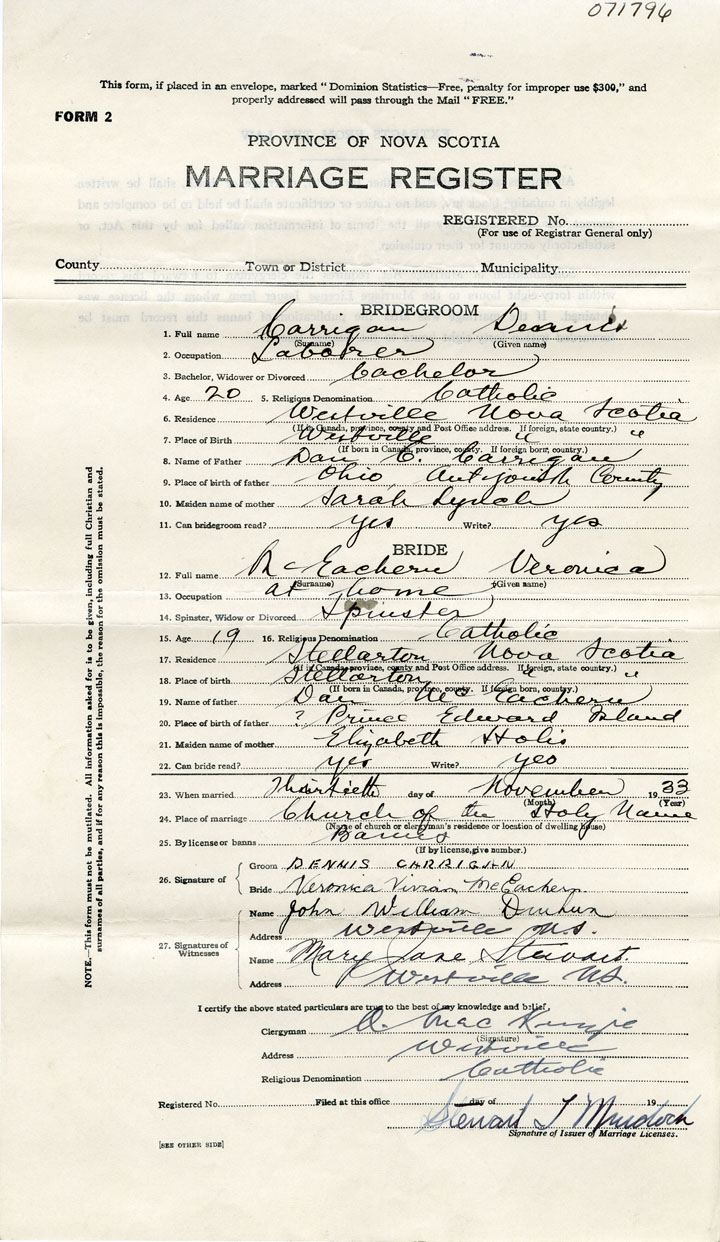 071796
This form, if placed in an envelope, marked "Dominion Statistics—Free, penalty for improper use $300," and
properly addressed will pass through the Mail "FREE."
FORM 2
PROVINCE OF NOVA SCOTIA
MARRIAGE REGISTER
REGISTERED No.
(For use of Registrar General only)
County Town or District Municipality
BRIDEGROOM
1. Full name Carrigan Dennis
(Surname) (Given name)
2. Occupation Laborer
3. Bachelor, Widower or Divorced Bachelor
4. Age 20 5. Religious Denomination Catholic
6. Residence Westville Nova Scotia
(If in Canada, province, county and Post Office address. If foreign, state country.)
7. Place of Birth Westville " "
(If born in Canada, province, county. If foreign born, country.)
8. Name of Father Dan C. Carrigan
9. Place of birth of father Ohio, Antigonish County
10. Maiden name of mother Sarah Lynch
11. Can bridegroom read? yes Write? yes
BRIDE
12. Full name McEachern Veronica
(Surname) (Given name)
13. Occupation at home
14. Spinster, Widow or Divorced Spinster
15. Age 19 16. Religious Denomination Catholic
17. Residence Stellarton Nova Scotia
(If in Canada, province, county and Post Office address. If foreign, state country.)
18. Place of birth Stellarton " "
(If born in Canada, province, county. If foreign born, country.)
19. Name of father Dan McEachern
20. Place of birth of father ? Prince Edward Island
21. Maiden name of mother Elizabeth Holis
22. Can bride read? yes Write? yes
23. When married Thirtieth day of November 1933
(Month) (Year)
24. Place of marriage Church of the Holy Name
(Name of church or clergyman's residence or location of dwelling house)
25. By license or banns Banns
(If by license, give number.)
26. Signature of
Groom DENNIS CARRIGAN
Bride Veronica Vivian McEachern
27. Signatures of Witnesses
Name John William
Address Westville N.S.
Name Mary Jane Stewart
Address Westville N.S.
I certify the above stated particulars are true to the best of my knowledge and belief.
Clergyman MacKenzie
(Signature)
Address Westville
Religious Denomination Catholic
Registered No. Filed at this office day of 19
Stewart T Murdock
Signature of Issuer of Marriage Licenses.
[SEE OTHER SIDE]
NOTE.—This form must not be mutilated. All information asked for is to be given, including full Christian and
surnames of all parties, and if for any reason this is impossible, the reason for the omission must be stated.